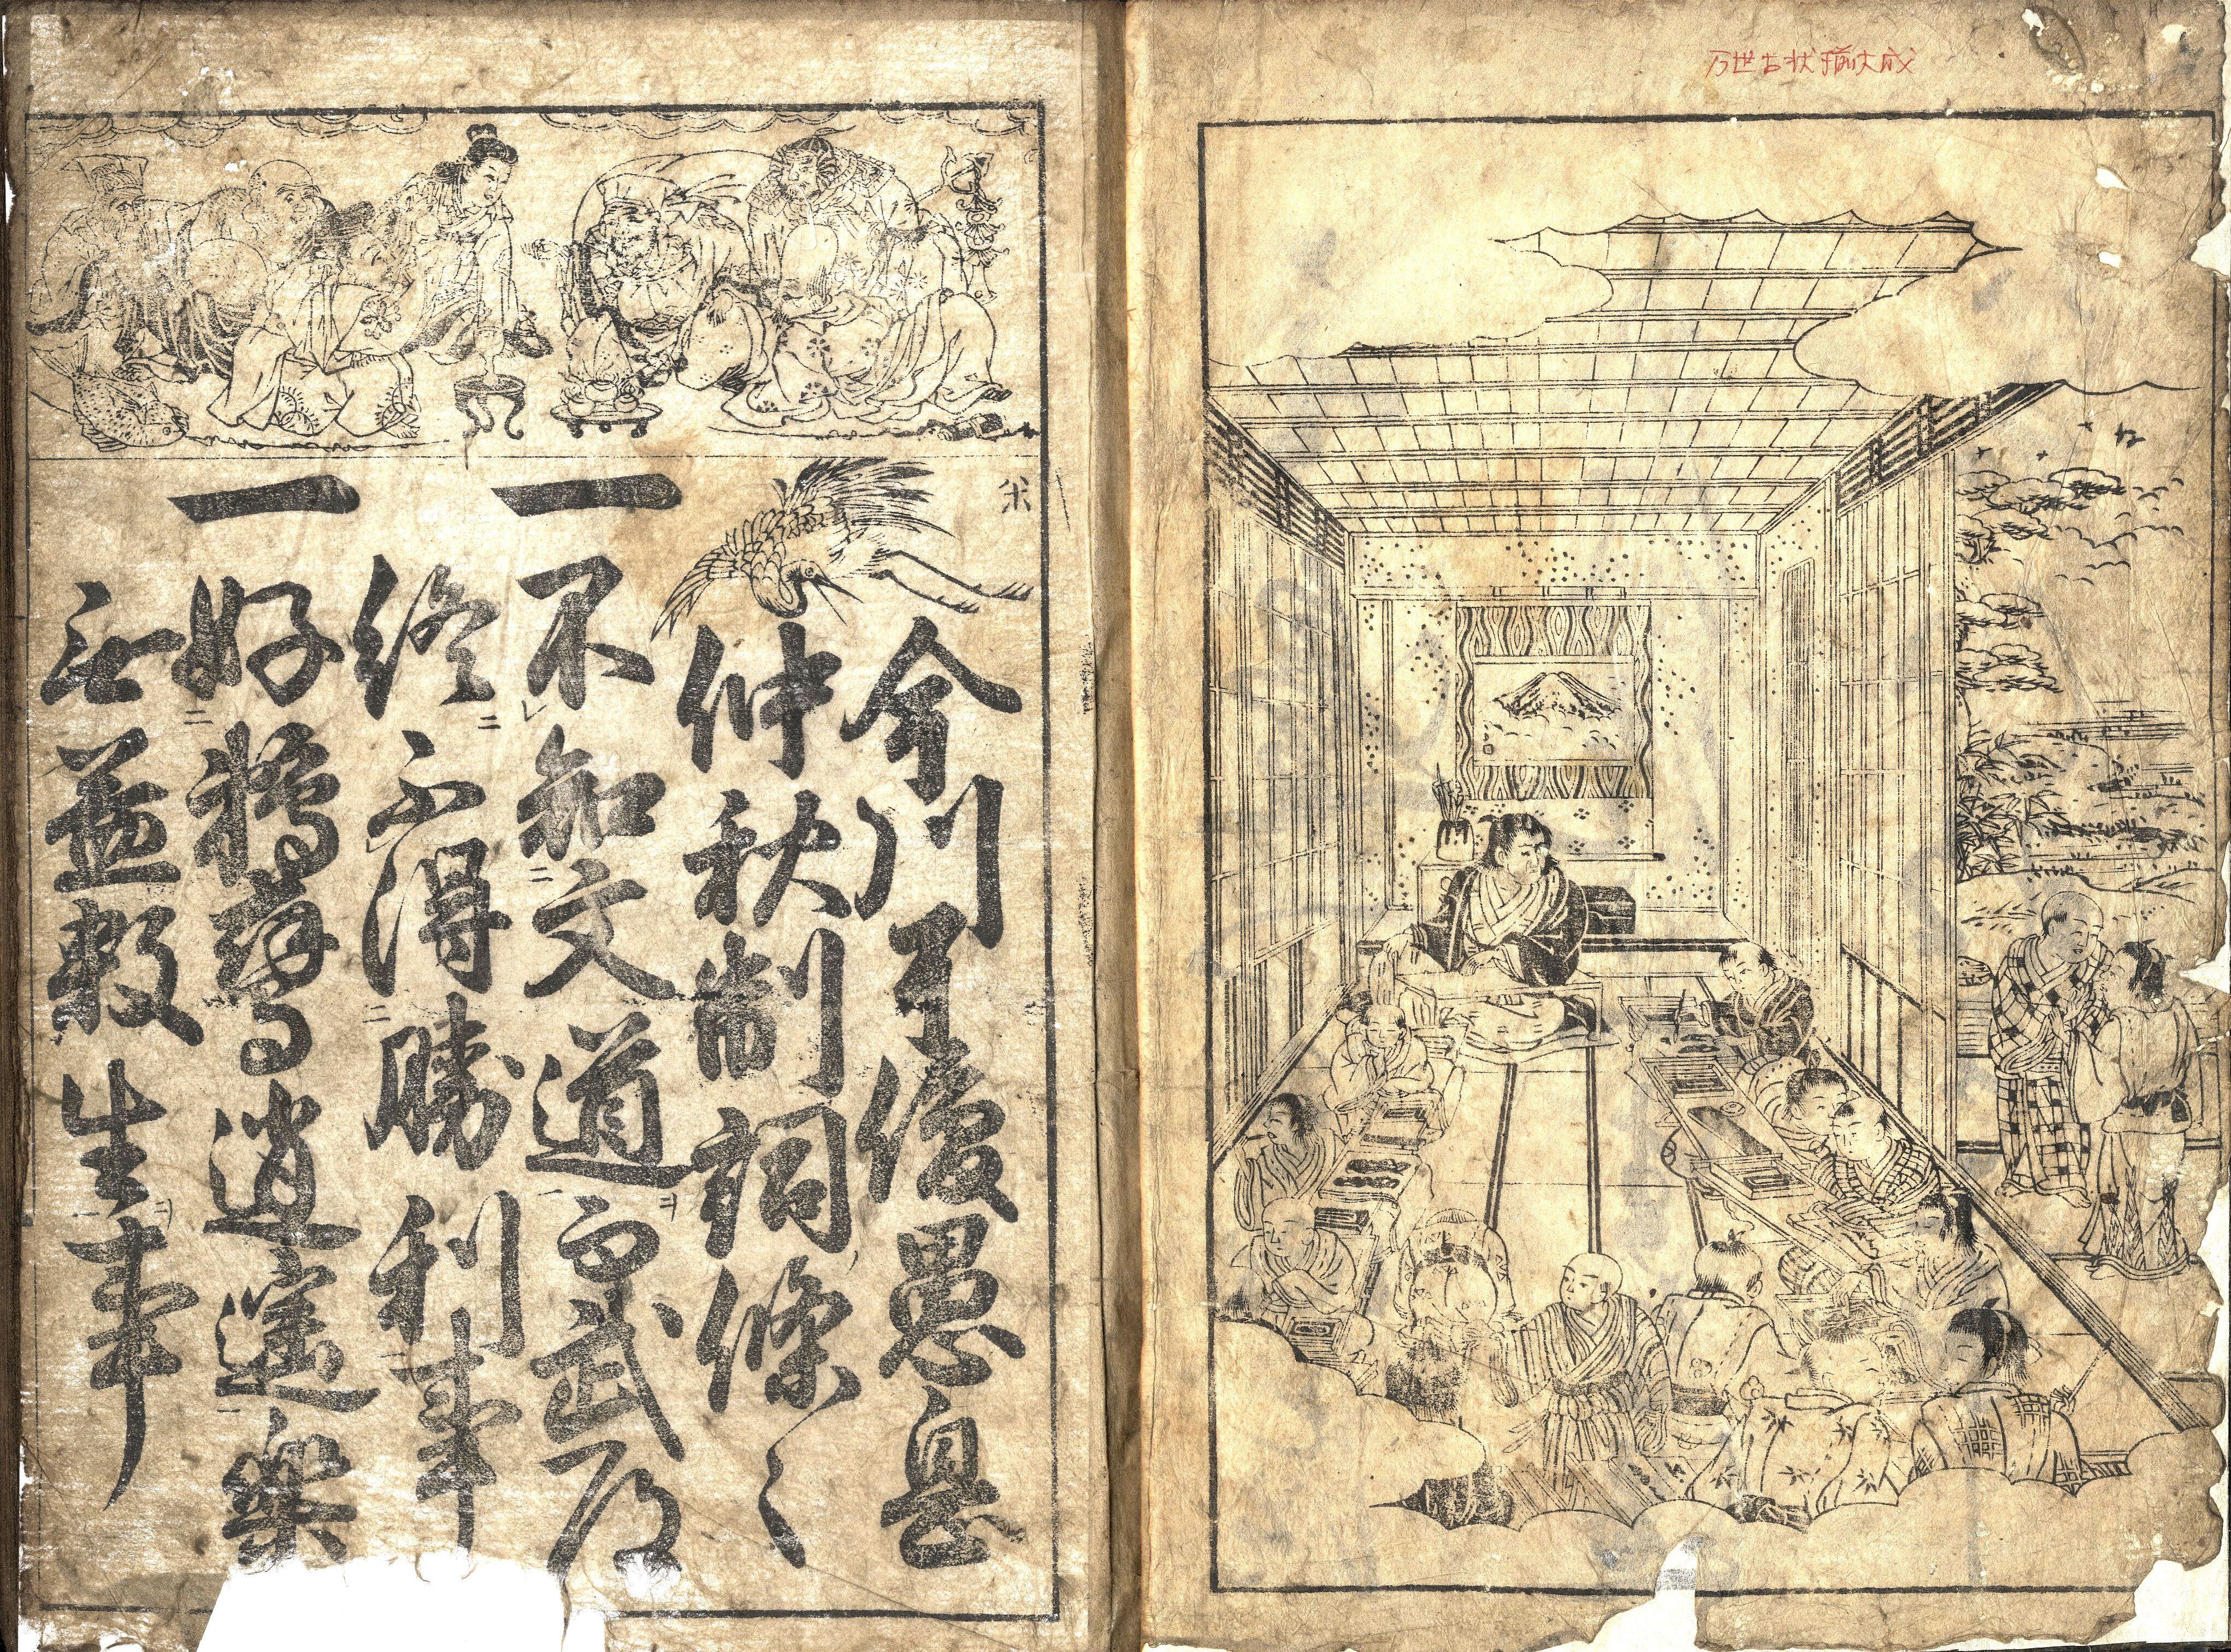 万世古状揃大成
今川了俊愚息
仲秋制詞條々
一不知文道而武道
終不得勝利事
一好鵜鷹逍遥樂
無益殺生事